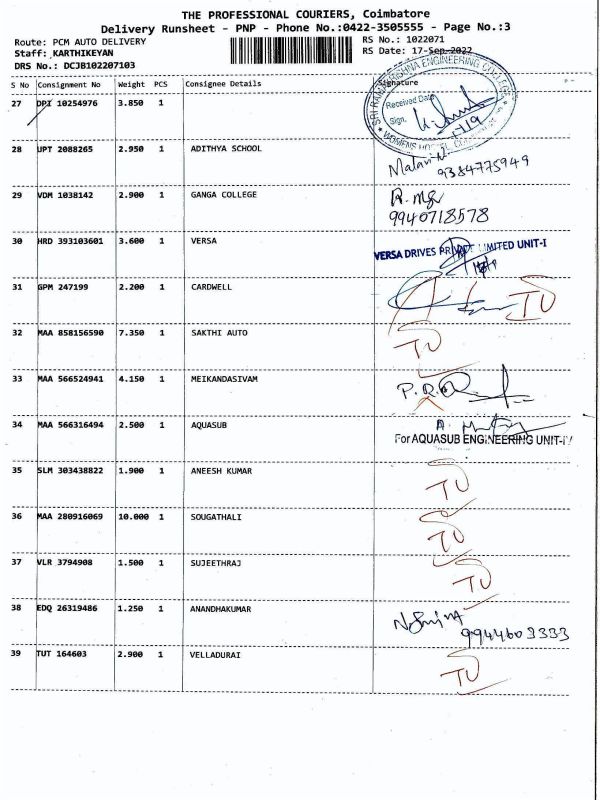 THE PROFESSIONAL COURIERS, Coimbatore
Delivery Runsheet - PNP - Phone No.:0422-3505555 - Page No.:3
Route: PCM AUTO DELIVERY
RS No.: 1022071
Staff: KARTHIKEYAN
RS Date: 17-Sep-2022
DRS No.: DCJB102207103
S No Consignment No Weight PCS Consignee Details Signature
27 DPI 10254976 3.850 1
SRI RAMAKRISHNA ENGINEERING COLLEGE
Received Date
Sign.
WOMENS HOSTEL
28 UPT 2088265 2.950 1 ADITHYA SCHOOL
Malavi N
9384775949
29 VDM 1038142 2.900 1 GANGA COLLEGE
9940718578
30 HRD 393103601 3.600 1 VERSA
VERSA DRIVES PRIVATE LIMITED UNIT-I
31 GPM 247199 2.200 1 CARDWELL
TU
32 MAA 858156590 7.350 1 SAKTHI AUTO
TU
33 MAA 566524941 4.150 1 MEIKANDASIVAM
34 MAA 566316494 2.500 1 AQUASUB
For AQUASUB ENGINEERING UNIT-IV
35 SLM 303438822 1.900 1 ANEESH KUMAR
TU
36 MAA 280916069 10.000 1 SOUGATHALI
TU
37 VLR 3794908 1.500 1 SUJEETHRAJ
TU
38 EDQ 26319486 1.250 1 ANANDHAKUMAR
9944603333
39 TUT 164603 2.900 1 VELLADURAI
TU